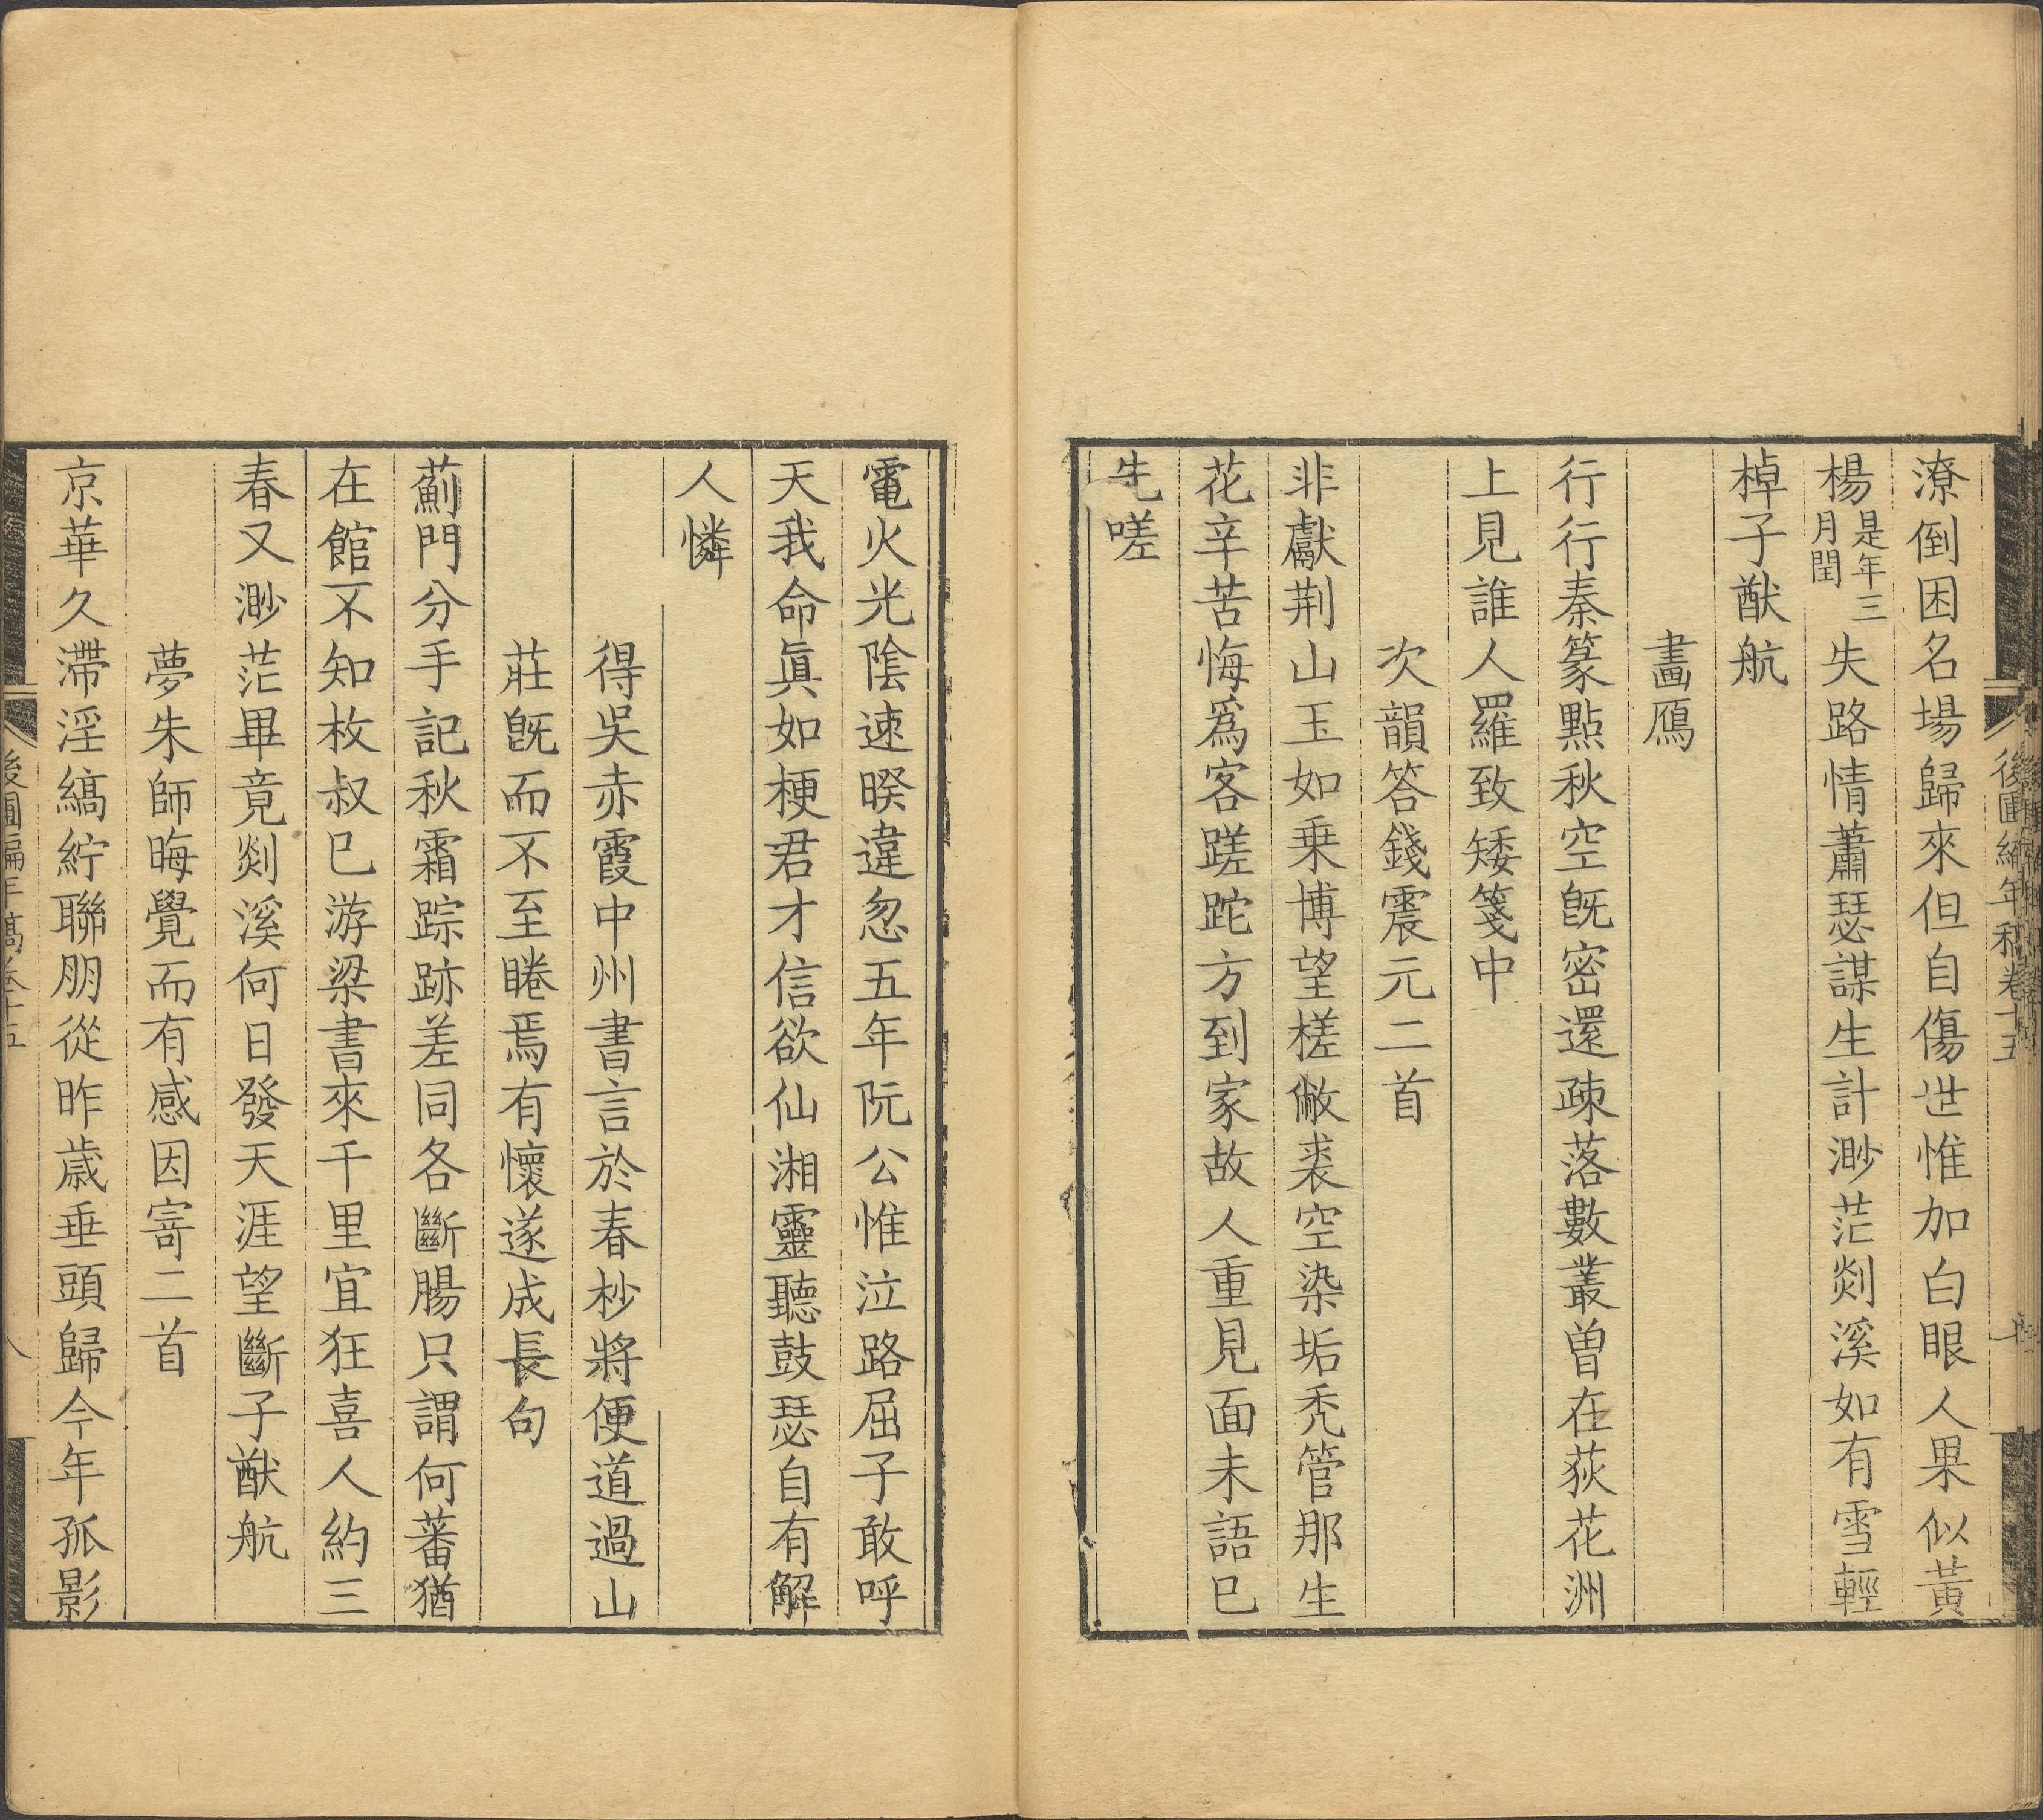 潦倒困名場歸來但自傷世惟加白眼人果似黃
楊是年三月閏失路情蕭瑟謀生計渺茫剡溪如有雪輕
棹子猷航
畫鴈
行行秦篆點秋空旣密還疎落數叢曾在荻花洲
上見誰人羅致矮箋中
次韻答錢震元二首
非獻荆山玉如乗博望槎敝裘空染垢禿管那生
花辛苦悔爲客蹉跎方到家故人重見面未語已
先嗟
電火光陰速暌違忽五年阮公惟泣路屈子敢呼
天我命眞如梗君才信欲仙湘靈聽鼓瑟自有解
人憐
得吳赤霞中州書言於春杪將便道過山
莊旣而不至睠焉有懷遂成長句
薊門分手記秋霜踪跡差同各斷腸只謂何蕃猶
在館不知枚叔已游梁書來千里宜狂喜人約三
春又渺茫畢竟剡溪何日發天涯望斷子猷航
夢朱師晦覺而有感因寄二首
京華久滯淫縞紵聯朋從昨歲垂頭歸今年孤影
後圃編年稿卷十五